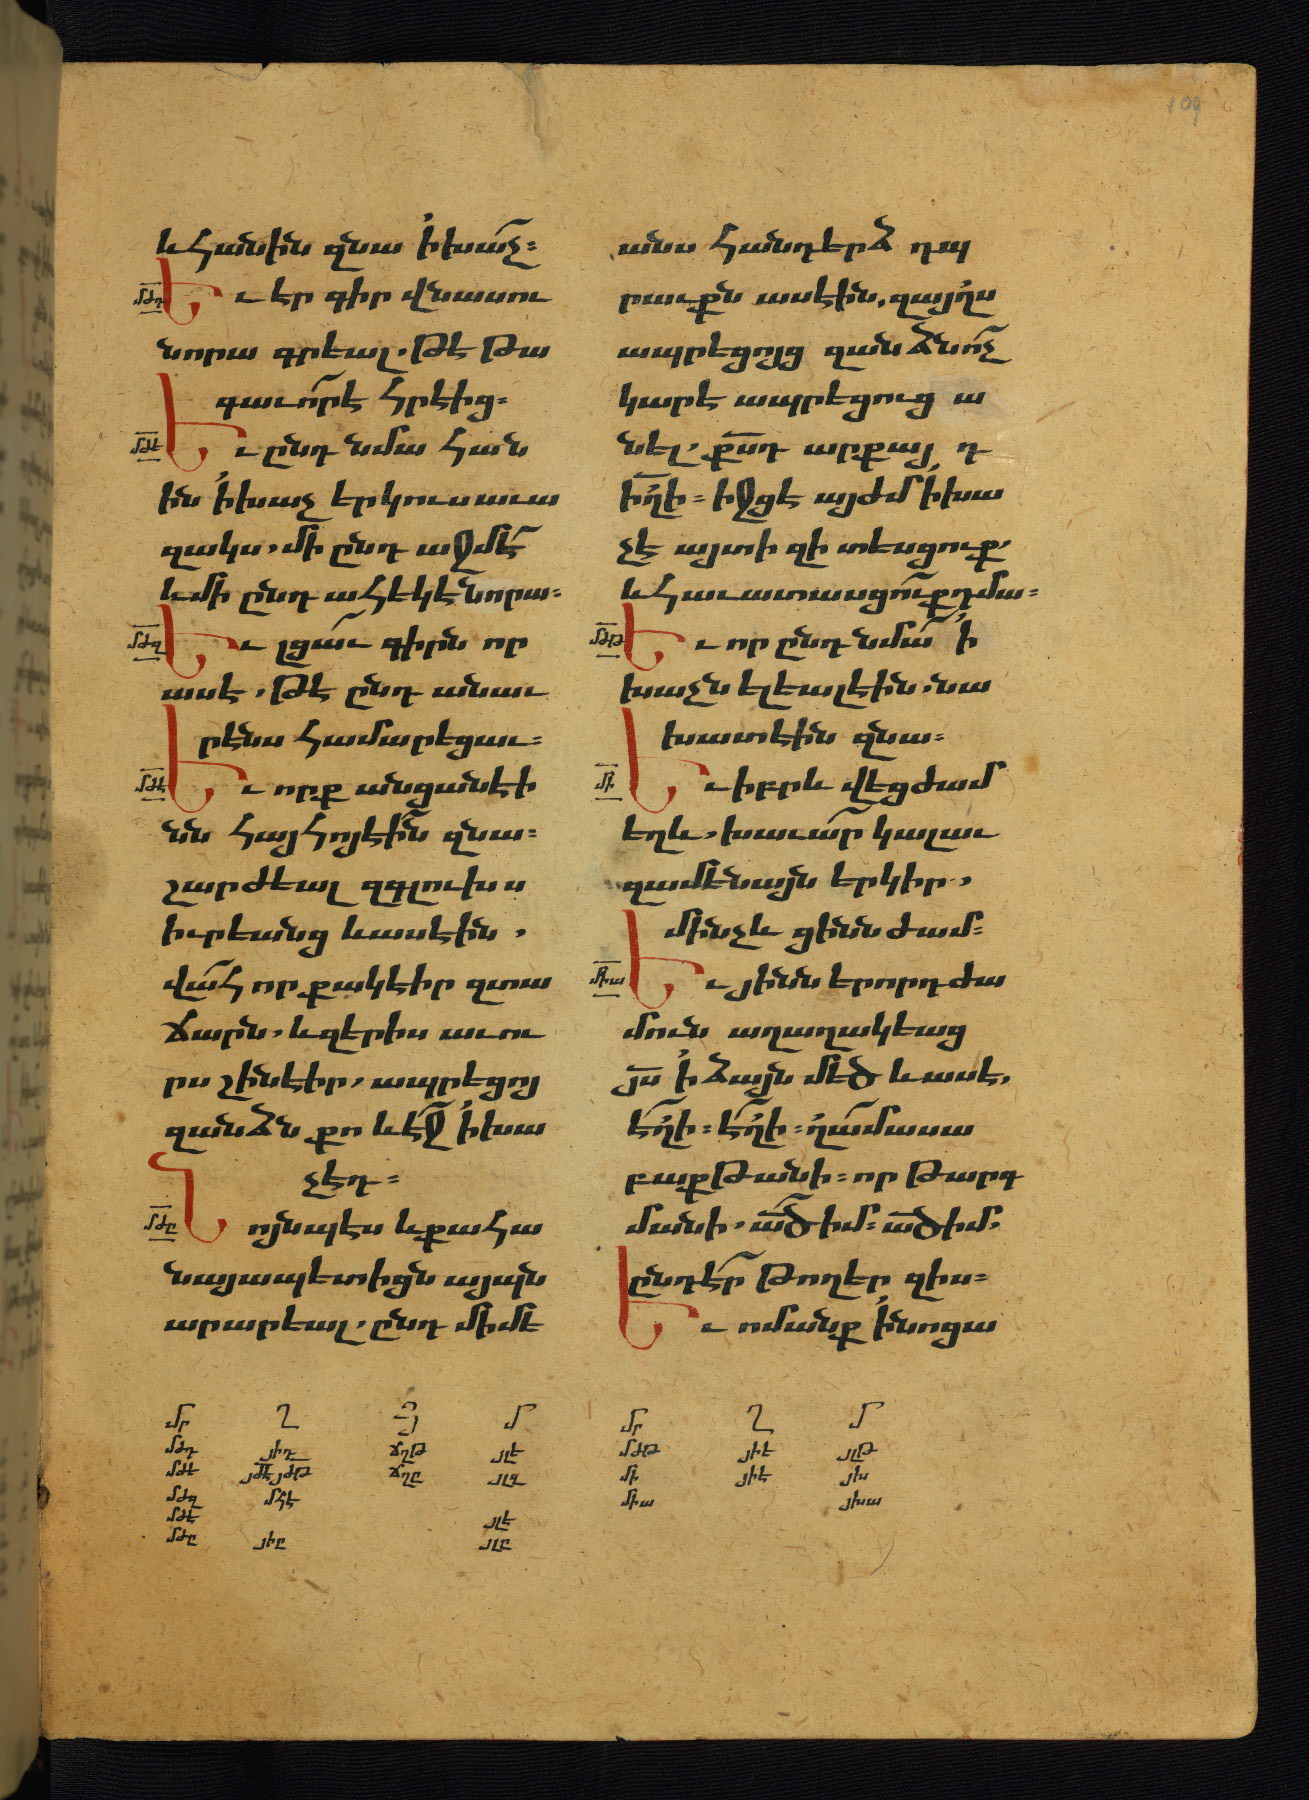 109
և հանին զնա ի խաչ։
մժդ Եւ էր գիր վնասու
նորա գրեալ. թէ թա
գաւոր է հրէից։
մժե Եւ ընդ նմա հան
ին ի խաչ երկուս աւա
զակս, մի ընդ աջմէ
և մի ընդ ահեկէ նորա։
մժզ Եւ լցաւ գիրն որ
ասէ, թէ ընդ անաւ
րէնս համարեցաւ։
մժէ Եւ որք անցանէի
նն հայհոյէին զնա։
շարժեալ զգլուխս
իւրեանց և ասէին,
վահ որ քակէիր զտա
ճարն, և զերիս աւու
րս շինէիր, ապրեցոյ
զանձն քո և էջ ի խա
չէդ։
մժը Նոյնպէս և քահա
նայապետիցն այպն
արարեալ, ընդ միմե
անս հանդերձ դպ
րաւքն ասէին, զայլս
ապրեցոյց զանձն ոչ
կարէ ապրեցուց ա
նել, քս դ արքայ դ
իղի։ իջցէ այժմ ի խա
չէ այտի զի տեսցուք,
և հաւատասցուք դմա։
մժթ Եւ որ ընդ նմա ի
խաչն ելեալ էին, նա
խատէին զնա։
մի Եւ իբրև վեց ժամ
եղև, խաւար կալաւ
զամենայն երկիր,
մինչև ցինն ժամ։
միա Եւ յինն երորդ ժա
մուն աղաղակեաց
յս ի ձայն մեծ և ասէ,
էղի։ էղի։ ղամասա
բաքթանի։ որ թարգ
մանի, ած իմ։ ած իմ,
ընդէր թողեր զիս։
Եւ ոմանք ի նոցա
մր Ղ Յ մ
մժդ յիդ ճղթ յլէ
մժե յժե յժթ ճղը յլզ
մժզ մհէ
մժէ յլէ
մժը յիը յլը
մր Ղ մ
մժթ յիէ յլթ
մի յիէ յխ
միա յխա